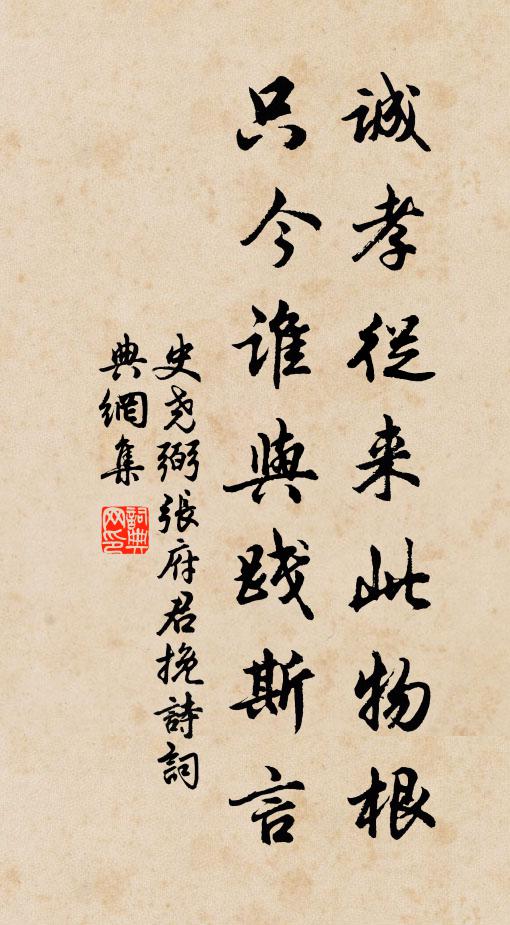 誠孝從来此物根
只今誰與踐斯言
史堯弼張府君挽詩詞
典網集
詞典
网印